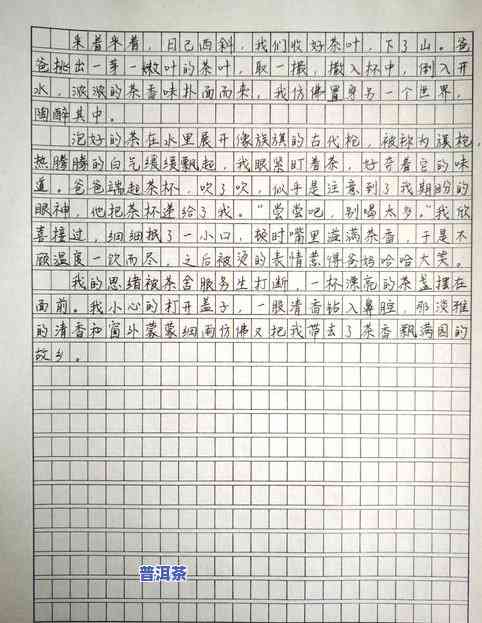 采着采着，日已西斜，我们收好茶叶，下了山。爸
爸挑出一芽一嫩叶的茶叶，取一撮，撒入杯中，倒入开
水，浓浓的茶香味扑面而来，我仿佛置身另一个世界，
陶醉其中。
泡好的茶在水里展开像旗的古代枪，被称为旗枪，
热腾腾的白气缓缓飘起，我眼紧盯着茶，好奇着它的味
道。爸爸端起茶杯，吹了吹，似乎是注意到了我期盼的
眼神，他把茶杯递给了我。“尝尝吧，别喝太多。”我欣
喜接过，细细抿了一小口，顿时嘴里溢满茶香，于是不
顾温度一饮而尽，之后被烫的表情惹得爸妈哈哈大笑。
我的思绪被茶舍服务生打断，一杯漂亮的茶盖摆在
面前。我小心的打开盖子，一股清香钻入鼻腔，那淡雅
的清香和窗外蒙蒙细雨仿佛又把我带去了茶香飘满园的
故乡。
普洱茶